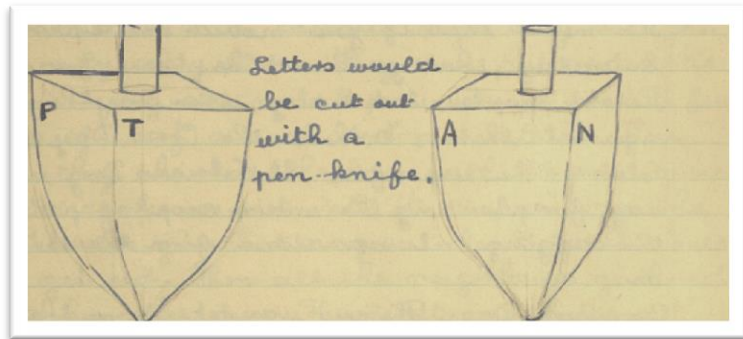 P
T
Letters would
be cut out
with a
pen-knife.
A
N